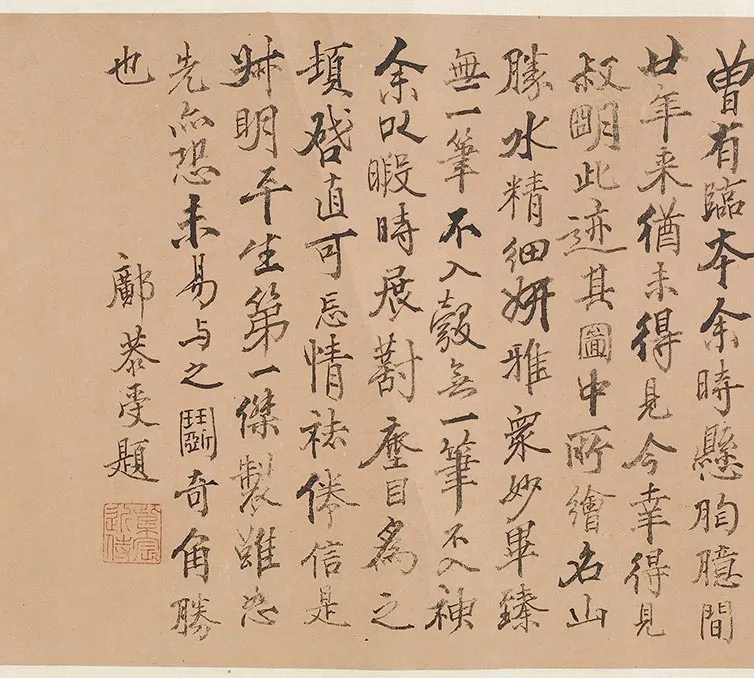 曾有臨本余時懸胸臆間
廿年来猶未得見今幸得見
叔明此迹其圖中所繪名山
勝水精細妍雅衆妙畢臻
無一筆不入彀無一筆不入神
余以暇時展對塵目為之
頓啓直可忘情祛倦信是
叔明平生第一傑製雖恕
先亦恐未易与之鬭奇角勝
也
鄺恭受題